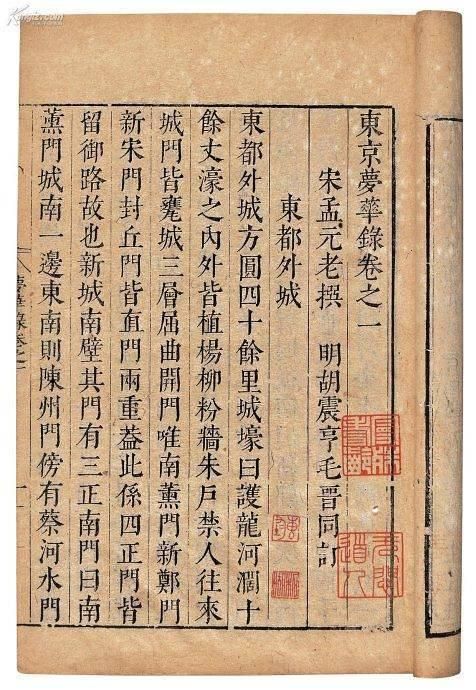 東京夢華錄卷之一
宋孟元老撰 明胡震亨毛晉同訂
東都外城
東都外城方圓四十餘里城壕曰護龍河濶十
餘丈濠之內外皆植楊柳粉牆朱戶禁人往來
城門皆甕城三層屈曲開門唯南薰門新鄭門
新宋門封丘門皆直門兩重葢此係四正門皆
留御路故也新城南壁其門有三正南門曰南
薰門城南一邊東南則陳州門傍有蔡河水門
夢華錄卷之一